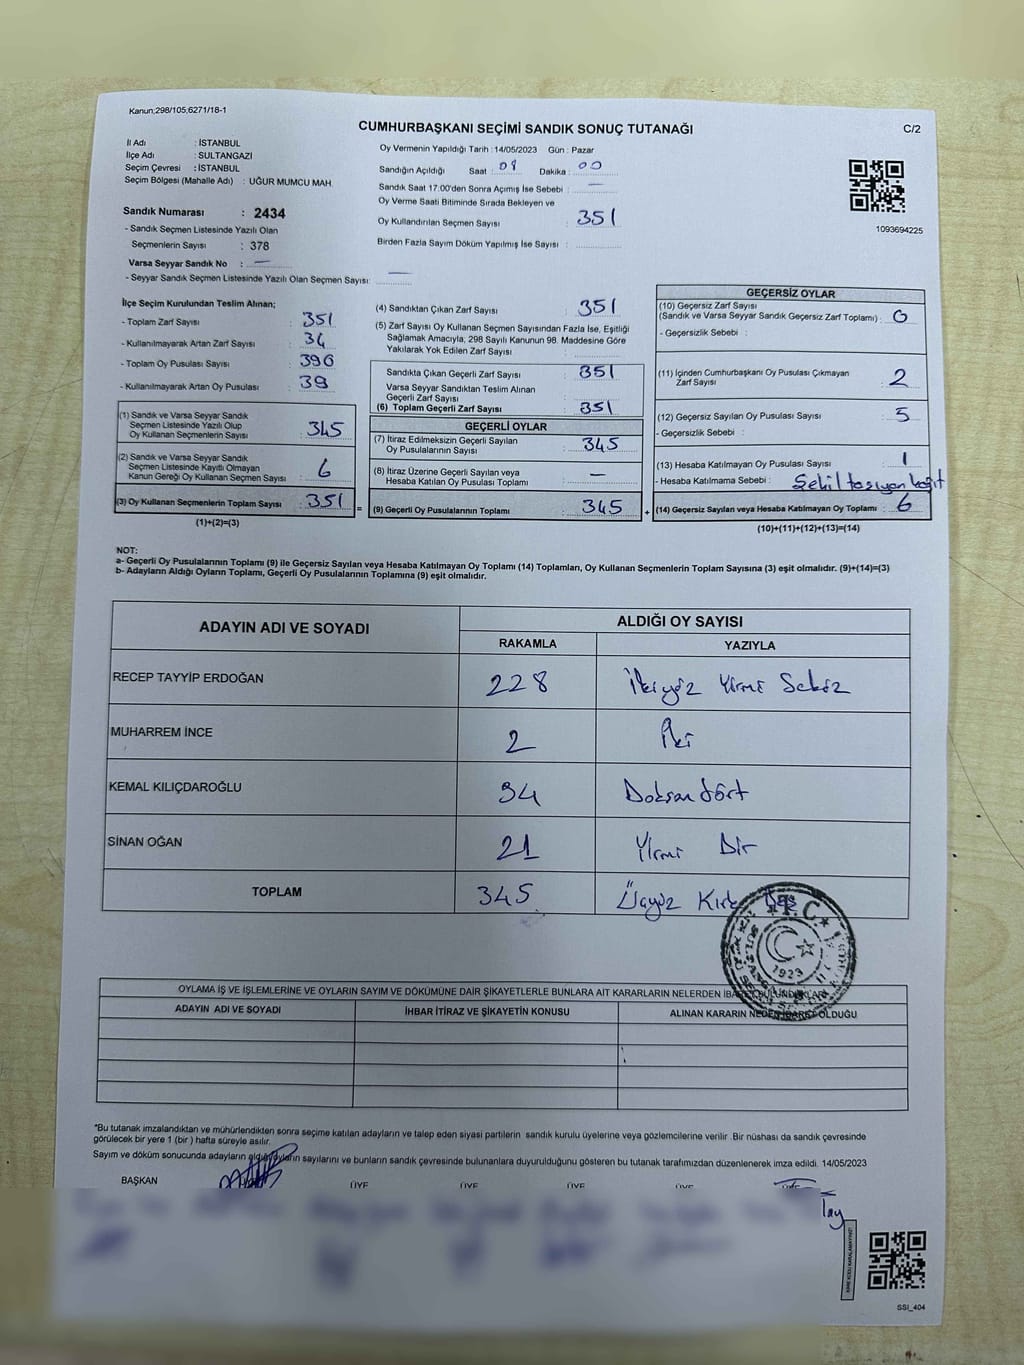 Kanun;298/105;6271/18-1
CUMHURBAŞKANI SEÇİMİ SANDIK SONUÇ TUTANAĞI
C/2
İl Adı : İSTANBUL
İlçe Adı : SULTANGAZİ
Seçim Çevresi : İSTANBUL
Seçim Bölgesi (Mahalle Adı) : UĞUR MUMCU MAH.
Sandık Numarası : 2434
- Sandık Seçmen Listesinde Yazılı Olan
Seçmenlerin Sayısı : 378
Varsa Seyyar Sandık No : —
- Seyyar Sandık Seçmen Listesinde Yazılı Olan Seçmen Sayısı: —
Oy Vermenin Yapıldığı Tarih : 14/05/2023 Gün : Pazar
Sandığın Açıldığı Saat : 08 Dakika : 00
Sandık Saat 17.00'den Sonra Açılmış İse Sebebi : —
Oy Verme Saati Bitiminde Sırada Bekleyen ve
Oy Kullandırılan Seçmen Sayısı : 351
Birden Fazla Sayım Döküm Yapılmış İse Sayısı :
1093694225
İlçe Seçim Kurulundan Teslim Alınan;
- Toplam Zarf Sayısı : 351
- Kullanılmayarak Artan Zarf Sayısı : 34
- Toplam Oy Pusulası Sayısı : 390
- Kullanılmayarak Artan Oy Pusulası : 39
(1) Sandık ve Varsa Seyyar Sandık
Seçmen Listesinde Yazılı Olup
Oy Kullanan Seçmenlerin Sayısı : 345
(2) Sandık ve Varsa Seyyar Sandık
Seçmen Listesinde Kayıtlı Olmayan
Kanun Gereği Oy Kullanan Seçmen Sayısı : 6
(3) Oy Kullanan Seçmenlerin Toplam Sayısı : 351
(1)+(2)=(3)
(4) Sandıktan Çıkan Zarf Sayısı : 351
(5) Zarf Sayısı Oy Kullanan Seçmen Sayısından Fazla İse, Eşitliği
Sağlamak Amacıyla; 298 Sayılı Kanunun 98. Maddesine Göre
Yakılarak Yok Edilen Zarf Sayısı :
Sandıkta Çıkan Geçerli Zarf Sayısı : 351
Varsa Seyyar Sandıktan Teslim Alınan
Geçerli Zarf Sayısı :
(6) Toplam Geçerli Zarf Sayısı : 351
GEÇERLİ OYLAR
(7) İtiraz Edilmeksizin Geçerli Sayılan
Oy Pusulalarının Sayısı : 345
(8) İtiraz Üzerine Geçerli Sayılan veya
Hesaba Katılan Oy Pusulası Toplamı : —
= (9) Geçerli Oy Pusulalarının Toplamı : 345
GEÇERSİZ OYLAR
(10) Geçersiz Zarf Sayısı
(Sandık ve Varsa Seyyar Sandık Geçersiz Zarf Toplamı) : 0
- Geçersizlik Sebebi :
(11) İçinden Cumhurbaşkanı Oy Pusulası Çıkmayan
Zarf Sayısı : 2
(12) Geçersiz Sayılan Oy Pusulası Sayısı : 5
- Geçersizlik Sebebi :
(13) Hesaba Katılmayan Oy Pusulası Sayısı : 1
- Hesaba Katılmama Sebebi : Şekil taşıyan kağıt
+ (14) Geçersiz Sayılan veya Hesaba Katılmayan Oy Toplamı : 6
(10)+(11)+(12)+(13)=(14)
NOT:
a- Geçerli Oy Pusulalarının Toplamı (9) ile Geçersiz Sayılan veya Hesaba Katılmayan Oy Toplamı (14) Toplamları, Oy Kullanan Seçmenlerin Toplam Sayısına (3) eşit olmalıdır. (9)+(14)=(3)
b- Adayların Aldığı Oyların Toplamı, Geçerli Oy Pusulalarının Toplamına (9) eşit olmalıdır.
ADAYIN ADI VE SOYADI
ALDIĞI OY SAYISI
RAKAMLA YAZIYLA
RECEP TAYYİP ERDOĞAN 228 İkiyüz Yirmi Sekiz
MUHARREM İNCE 2 İki
KEMAL KILIÇDAROĞLU 94 Doksan dört
SİNAN OĞAN 21 Yirmi Bir
TOPLAM 345 Üçyüz Kırk Beş
T.C.
1923
OYLAMA İŞ VE İŞLEMLERİNE VE OYLARIN SAYIM VE DÖKÜMÜNE DAİR ŞİKAYETLERLE BUNLARA AİT KARARLARIN NELERDEN İBARET BULUNDUKLARI
ADAYIN ADI VE SOYADI İHBAR İTİRAZ VE ŞİKAYETİN KONUSU ALINAN KARARIN NEDEN İBARET OLDUĞU
*Bu tutanak imzalandıktan ve mühürlendikten sonra seçime katılan adayların ve talep eden siyasi partilerin sandık kurulu üyelerine veya gözlemcilerine verilir .Bir nüshası da sandık çevresinde
görülecek bir yere 1 (bir ) hafta süreyle asılır.
Sayım ve döküm sonucunda adayların aldığı oyların sayılarını ve bunların sandık çevresinde bulunanlara duyurulduğunu gösteren bu tutanak tarafımızdan düzenlenerek imza edildi. 14/05/2023
BAŞKAN ÜYE ÜYE ÜYE ÜYE
SSI_404